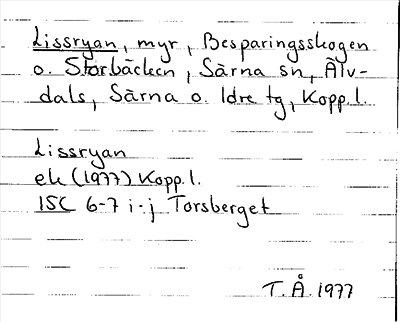 Lissryan, myr, Besparingsskogen
o. Storbäcken, Särna sn, Älv-
dals, Särna o. Idre tg, Kopp.l.
Lissryan
ek (1977) Kopp.l.
15C 6-7 i-j Torsberget
T.Å. 1977